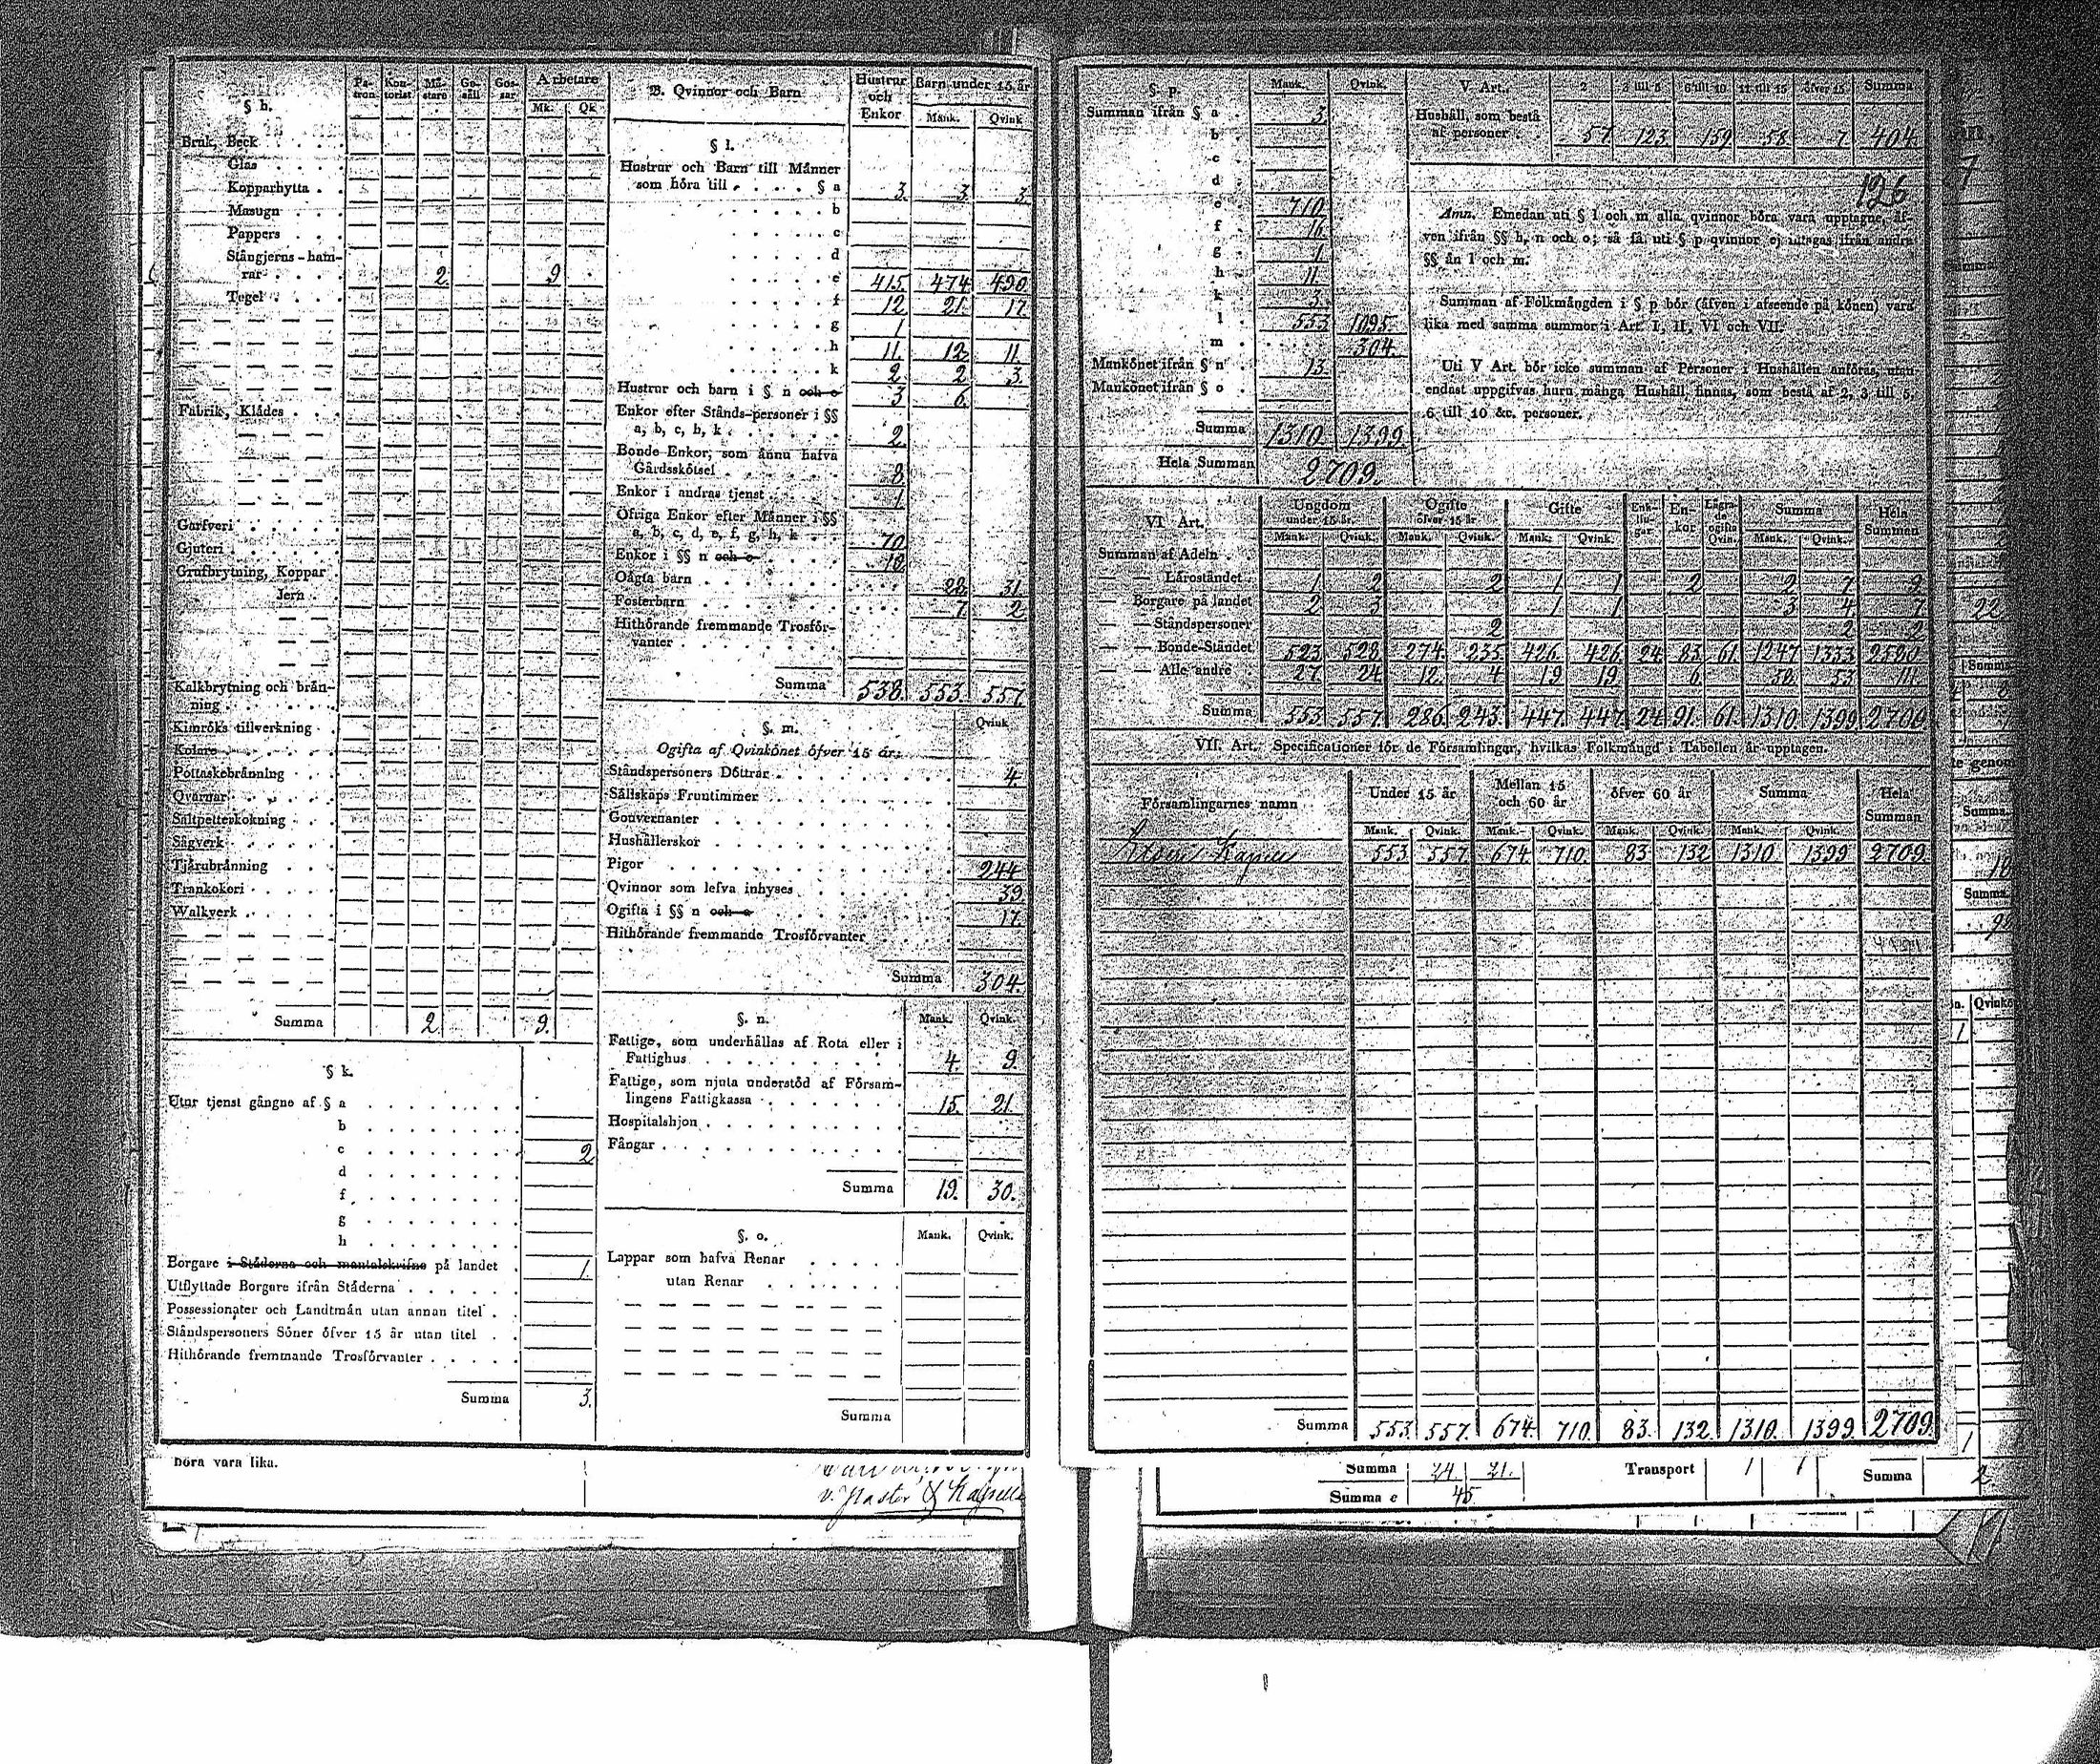 § h.
Pa-tron Kon-torist Mä-stare Ge-säll Gos-sar Arbetare
Mk. Qk
Bruk, Beck
Glas
Kopparhytta
Masugn
Pappers
Stångjerns-ham-
rar 2. 9
Tegel
Fabrik, Klådes
Garfveri
Gjuteri
Grufbrytning, Koppar
Jern
Kalkbrytning och brån-
ning
Kimröks tillverkning
Kolare
Pottaskebrånning
Qvarnar
Saltpetterkokning
Sågverk
Tjårubrånning
Trankokeri
Walkverk
Summa 2. 9.
§ k.
Utur tjenst gångne af § a
b
c 2
d
f
g
h
Borgare i Ståderna och mantalskrifne på landet 1.
Utflyttade Borgare ifrån Ståderna
Possessionater och Landtmån utan annan titel
Ståndspersoners Söner öfver 15 år utan titel
Hithörande fremmande Trosförvanter
Summa 3.
B. Qvinnor och Barn
Hustrur och Enkor Barn under 15 år
Mank. Qvink
§ l.
Hustrur och Barn till Männer
som höra till § a 3. 3. 3.
b
c
d
e 415. 474 490
f 12. 21. 17.
g 1.
h 11. 12. 11.
k 2. 2. 3.
Hustrur och barn i § n och o 3 6.
Enkor efter Stånds-personer i §§
a, b, c, h, k 2.
Bonde-Enkor, som ånnu hafva
Gårdsskötsel 8.
Enkor i andras tjenst 1.
Öfriga Enkor efter Männer i §§
a, b, c, d, e, f, g, h, k 70.
Enkor i §§ n och o 10.
Oågta barn 28. 31.
Fosterbarn 7. 2.
Hithörande fremmande Trosför-
vanter
Summa 538. 553. 557.
§. m.
Qvink
Ogifta af Qvinkönet öfver 15 år:
Ståndspersoners Döttrar 4.
Sållskaps Fruntimmer
Gouvernanter
Hushållerskor
Pigor 244
Qvinnor som lefva inhyses 39.
Ogifta i §§ n och o 17.
Hithörande fremmande Trosförvanter
Summa 304.
§. n.
Mank. Qvink.
Fattige, som underhållas af Rota eller i
Fattighus 4. 9.
Fattige, som njuta understöd af Försam-
lingens Fattigkassa 15. 21.
Hospitalshjon
Fångar
Summa 19. 30.
§. o.
Mank. Qvink.
Lappar som hafva Renar
utan Renar
Summa
böra vara lika.
v. Pastor
§ p.
Mank. Qvink.
Summan ifrån § a 3
b
c
d
e 710
f 16.
g 1.
h 11.
k 3.
l 553. 1095.
m 304.
Mankönet ifrån § n 13.
Mankönet ifrån § o
Summa 1310. 1399.
Hela Summan 2709.
V. Art. 2 3 till 5 6 till 10 11 till 15 öfver 15 Summa
Hushåll, som bestå
af personer 57. 123. 159. 58. 7. 404.
126
Anm. Emedan uti § l och m alla qvinnor böra vara upptagne, åf-
ven ifrån §§ h, n och o; så få uti § p qvinnor ej intagas ifrån andra
§§ ån l och m.
Summan af Folkmångden i § p bör (åfven i afseende på könen) vara
lika med samma summor i Art. I, II, VI och VII.
Uti V Art. bör icke summan af Personer i Hushållen anföras, utan
endast uppgifvas huru många Hushåll finnas, som bestå af 2, 3 till 5,
6 till 10 &c. personer.
VI Art.
Ungdom under 15 år. Ogifte öfver 15 år Gifte Enk-lin-gar. En-kor Lågra-de ogifta Qvin. Summa Hela Summan
Mank. Qvink. Mank. Qvink. Mank. Qvink. Mank. Qvink.
Summan af Adeln
Läroståndet 1 2 2 1 1 2 2 7 9
Borgare på landet 2 3 1 1 3 4 7.
Ståndspersoner 2 2 2
Bonde-Ståndet 523. 528. 274. 235 426. 426. 24. 83. 61. 1247 1333. 2580
Alle andre 27. 24. 12. 4 19 19 6. 58. 53 111.
Summa 553. 557. 286. 243. 447. 447. 24. 91. 61. 1310. 1399. 2709
VII. Art. Specificationer för de Församlingar, hvilkas Folkmångd i Tabellen år upptagen.
Församlingarnes namn Under 15 år Mellan 15 och 60 år öfver 60 år Summa Hela Summan
Mank. Qvink. Mank. Qvink. Mank. Qvink. Mank. Qvink.
553. 557. 674. 710. 83 132 1310 1399 2709.
Summa 553. 557. 674. 710. 83. 132. 1310. 1399. 2709.
Summa 24. 21. Transport 1 1 Summa 2
Summa e 45